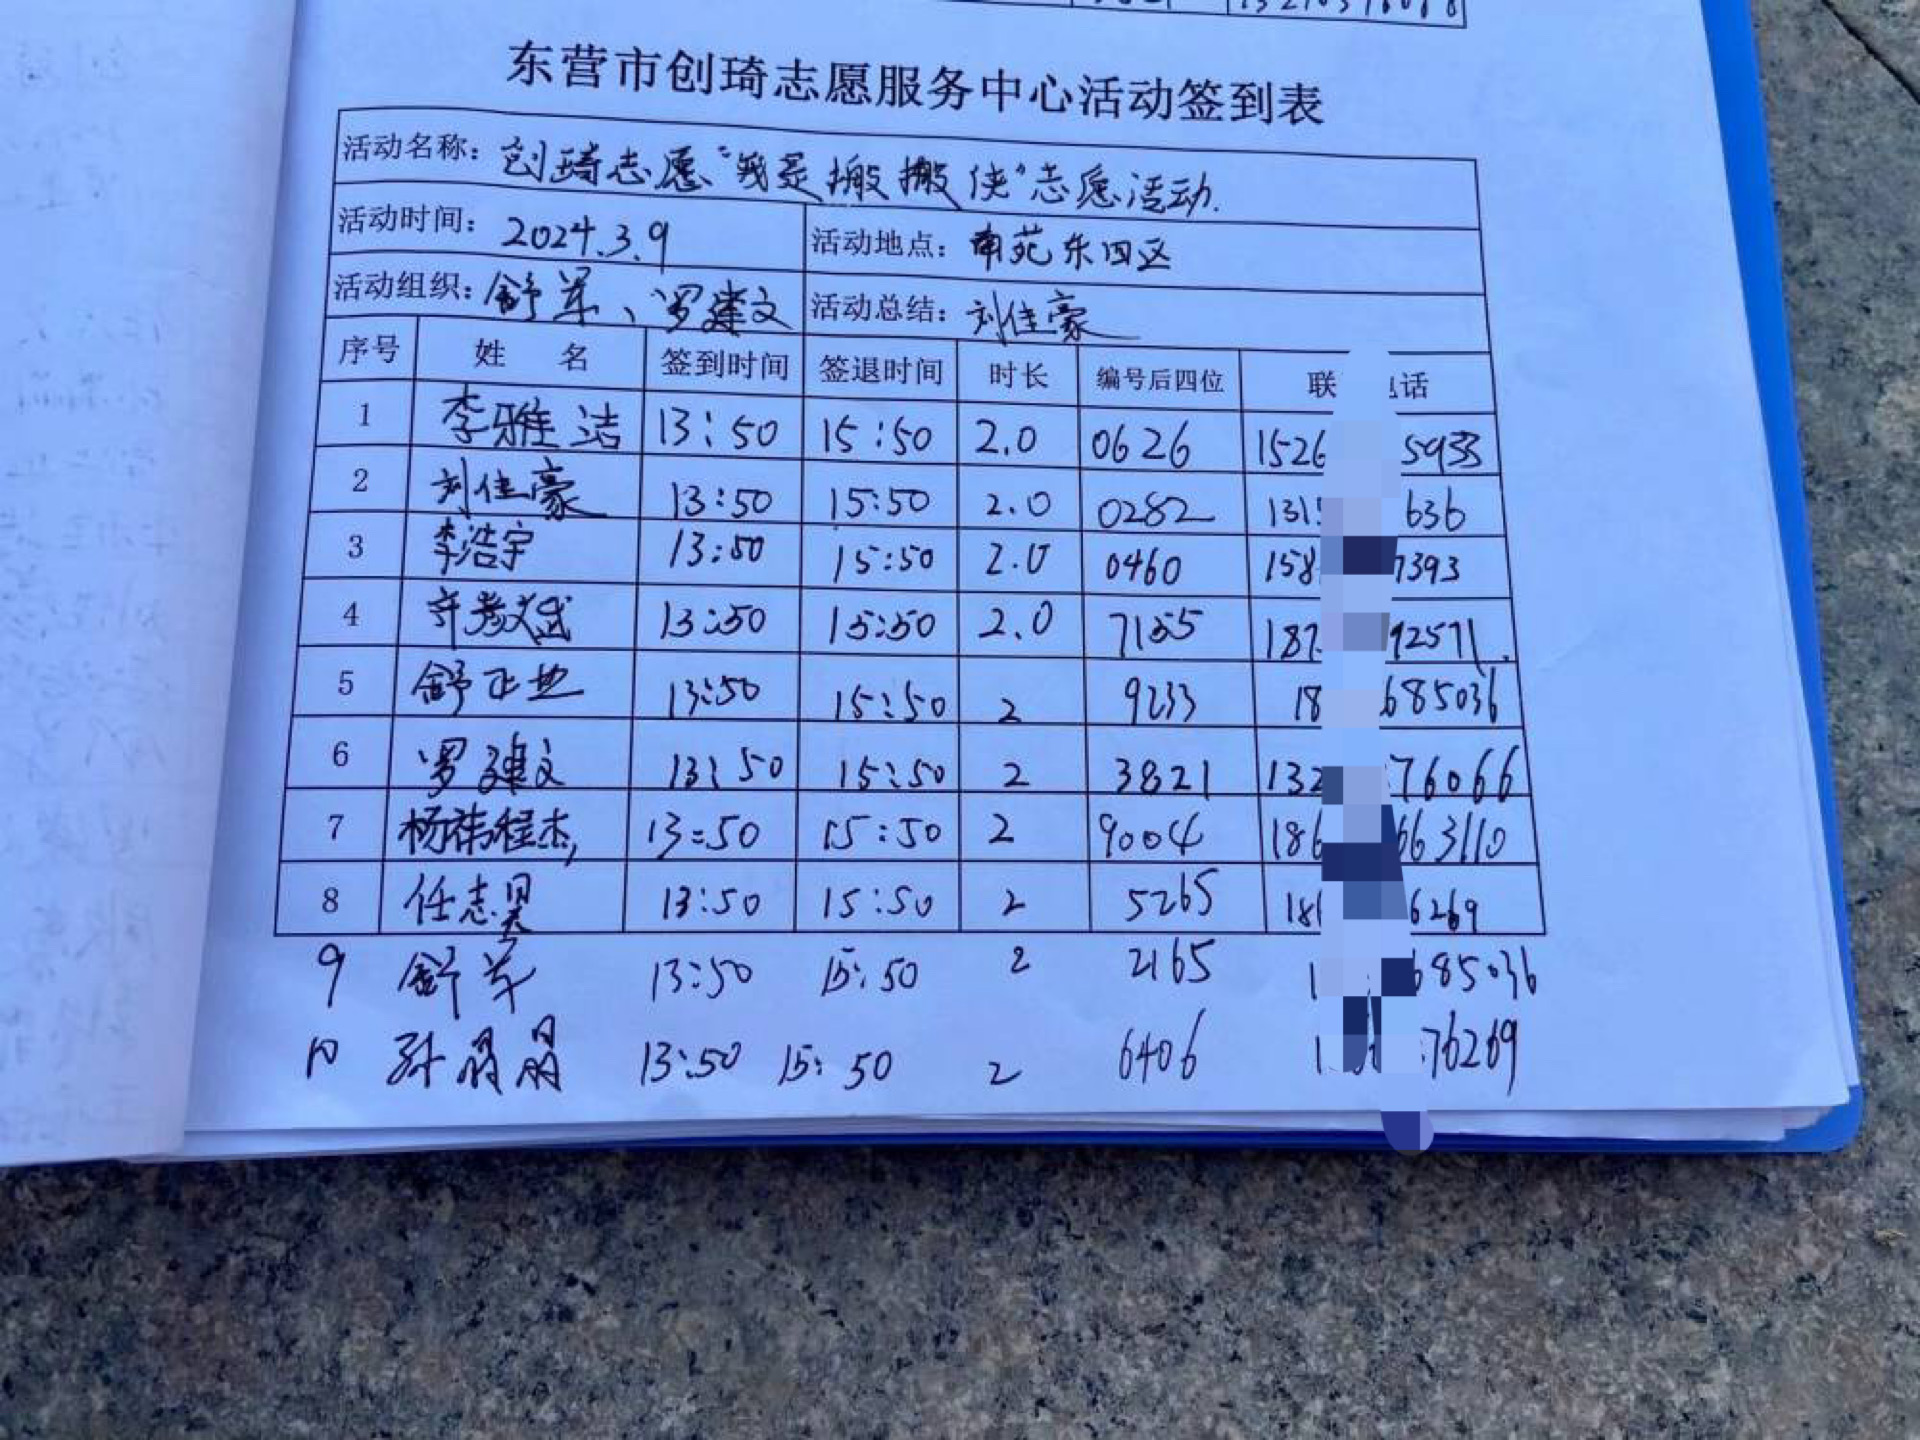 东营市创琦志愿服务中心活动签到表
活动名称：创琦志愿“我是搬搬侠”志愿活动.
活动时间：2024.3.9 活动地点：南苑东四区
活动组织：舒军、罗建文 活动总结：刘佳豪
序号 姓 名 签到时间 签退时间 时长 编号后四位 联 电话
1 李雅洁 13:50 15:50 2.0 0626 1526 5933
2 刘佳豪 13:50 15:50 2.0 0282 131 636
3 李浩宇 13:50 15:50 2.0 0460 158 7393
4 13:50 15:50 2.0 7155 187 92571.
5 舒正 13:50 15:50 2 9233 18 685036
6 罗建文 13:50 15:50 2 3821 132 76066
7 杨祎程杰, 13:50 15:50 2 9004 186 663110
8 任志昊 13:50 15:50 2 5265 18 6269
9 舒军 13:50 15:50 2 2165 1 685036
10 孙晶晶 13:50 15:50 2 6406 1 76269